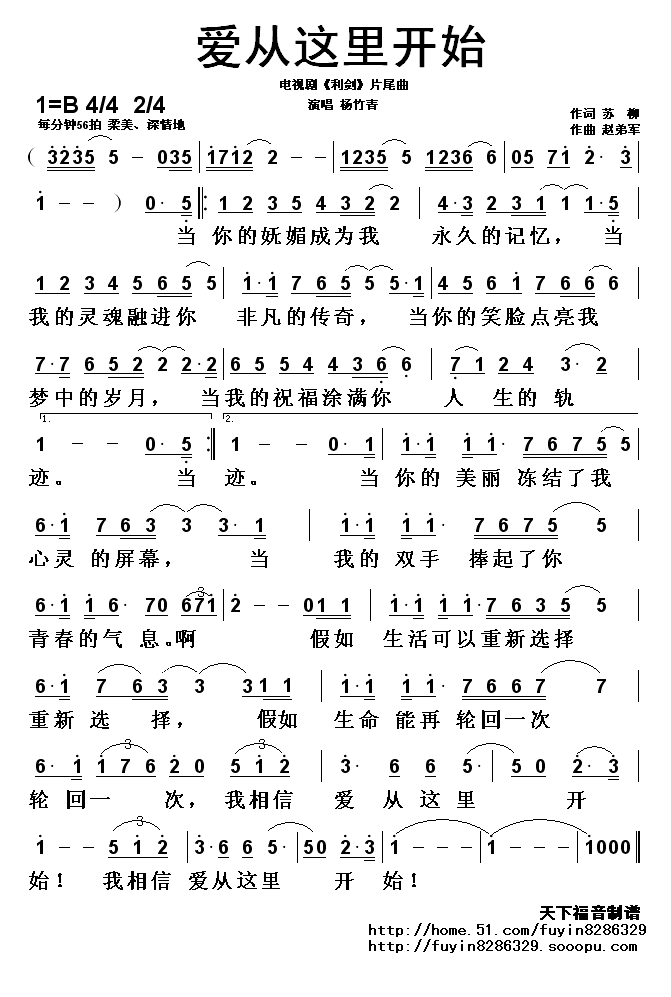 爱从这里开始
电视剧《利剑》片尾曲
演唱 杨竹青
1=B 4/4 2/4
每分钟56拍 柔美、深情地
作词 苏 柳
作曲 赵弟军
( 3235 5 - 035 | 1712 2 - - | 1235 1236 6 | 05 71 2· 3 |
1 - - ) 0· 5 |: 1 2 3 5 4 3 2 2 | 4·3 2 3 1 1 1·5 |
当 你的妩媚成为我 永久的记忆, 当
1 2 3 4 5 6 5 5 | 1·1 7 6 5 5 5·1 | 4 5 6 1 7 6 6 6 |
我的灵魂融进你 非凡的传奇, 当你的笑脸点亮我
7·7 6 5 2 2 2·2 | 6 5 5 4 3 6 6 | 7 1 2 4 3· 2 |
梦中的岁月, 当我的祝福涂满你 人 生的 轨
1. 2.
1 - - 0· 5 :| 1 - - 0· 1 | 1·1 1 1· 7 6 7 5 5 |
迹。 当 迹。 当 你的 美丽 冻结了我
6·1 7 6 3 3 3 3· 1 | 1·1 1 1· 7 6 7 5 5 |
心灵 的屏幕, 当 我的 双手 捧起了你
6·1 1 6· 70 671 | 2 - - 011 | 1·1 1 1 7 6 3 5 5 |
3
青春的气 息。啊 假如 生活可以重新选择
6·1 7 6 3 3 3 3 1 1 | 1·1 1 1· 7 6 6 7 7 |
重新 选 择, 假如 生命 能再 轮回一次
6· 1 1 7 6 2 0 5 1 2 | 3· 6 6 5 | 5 0 2· 3 |
3 3
轮 回一 次, 我相信 爱 从 这 里 开
1 - - 5 1 2 | 3·6 6 5· | 50 2·3 | 1 - - - | 1 - - - | 1000 |
3
始! 我相信 爱从这里 开 始!
天下福音制谱
http://home.51.com/fuyin8286329
http://fuyin8286329.sooopu.com